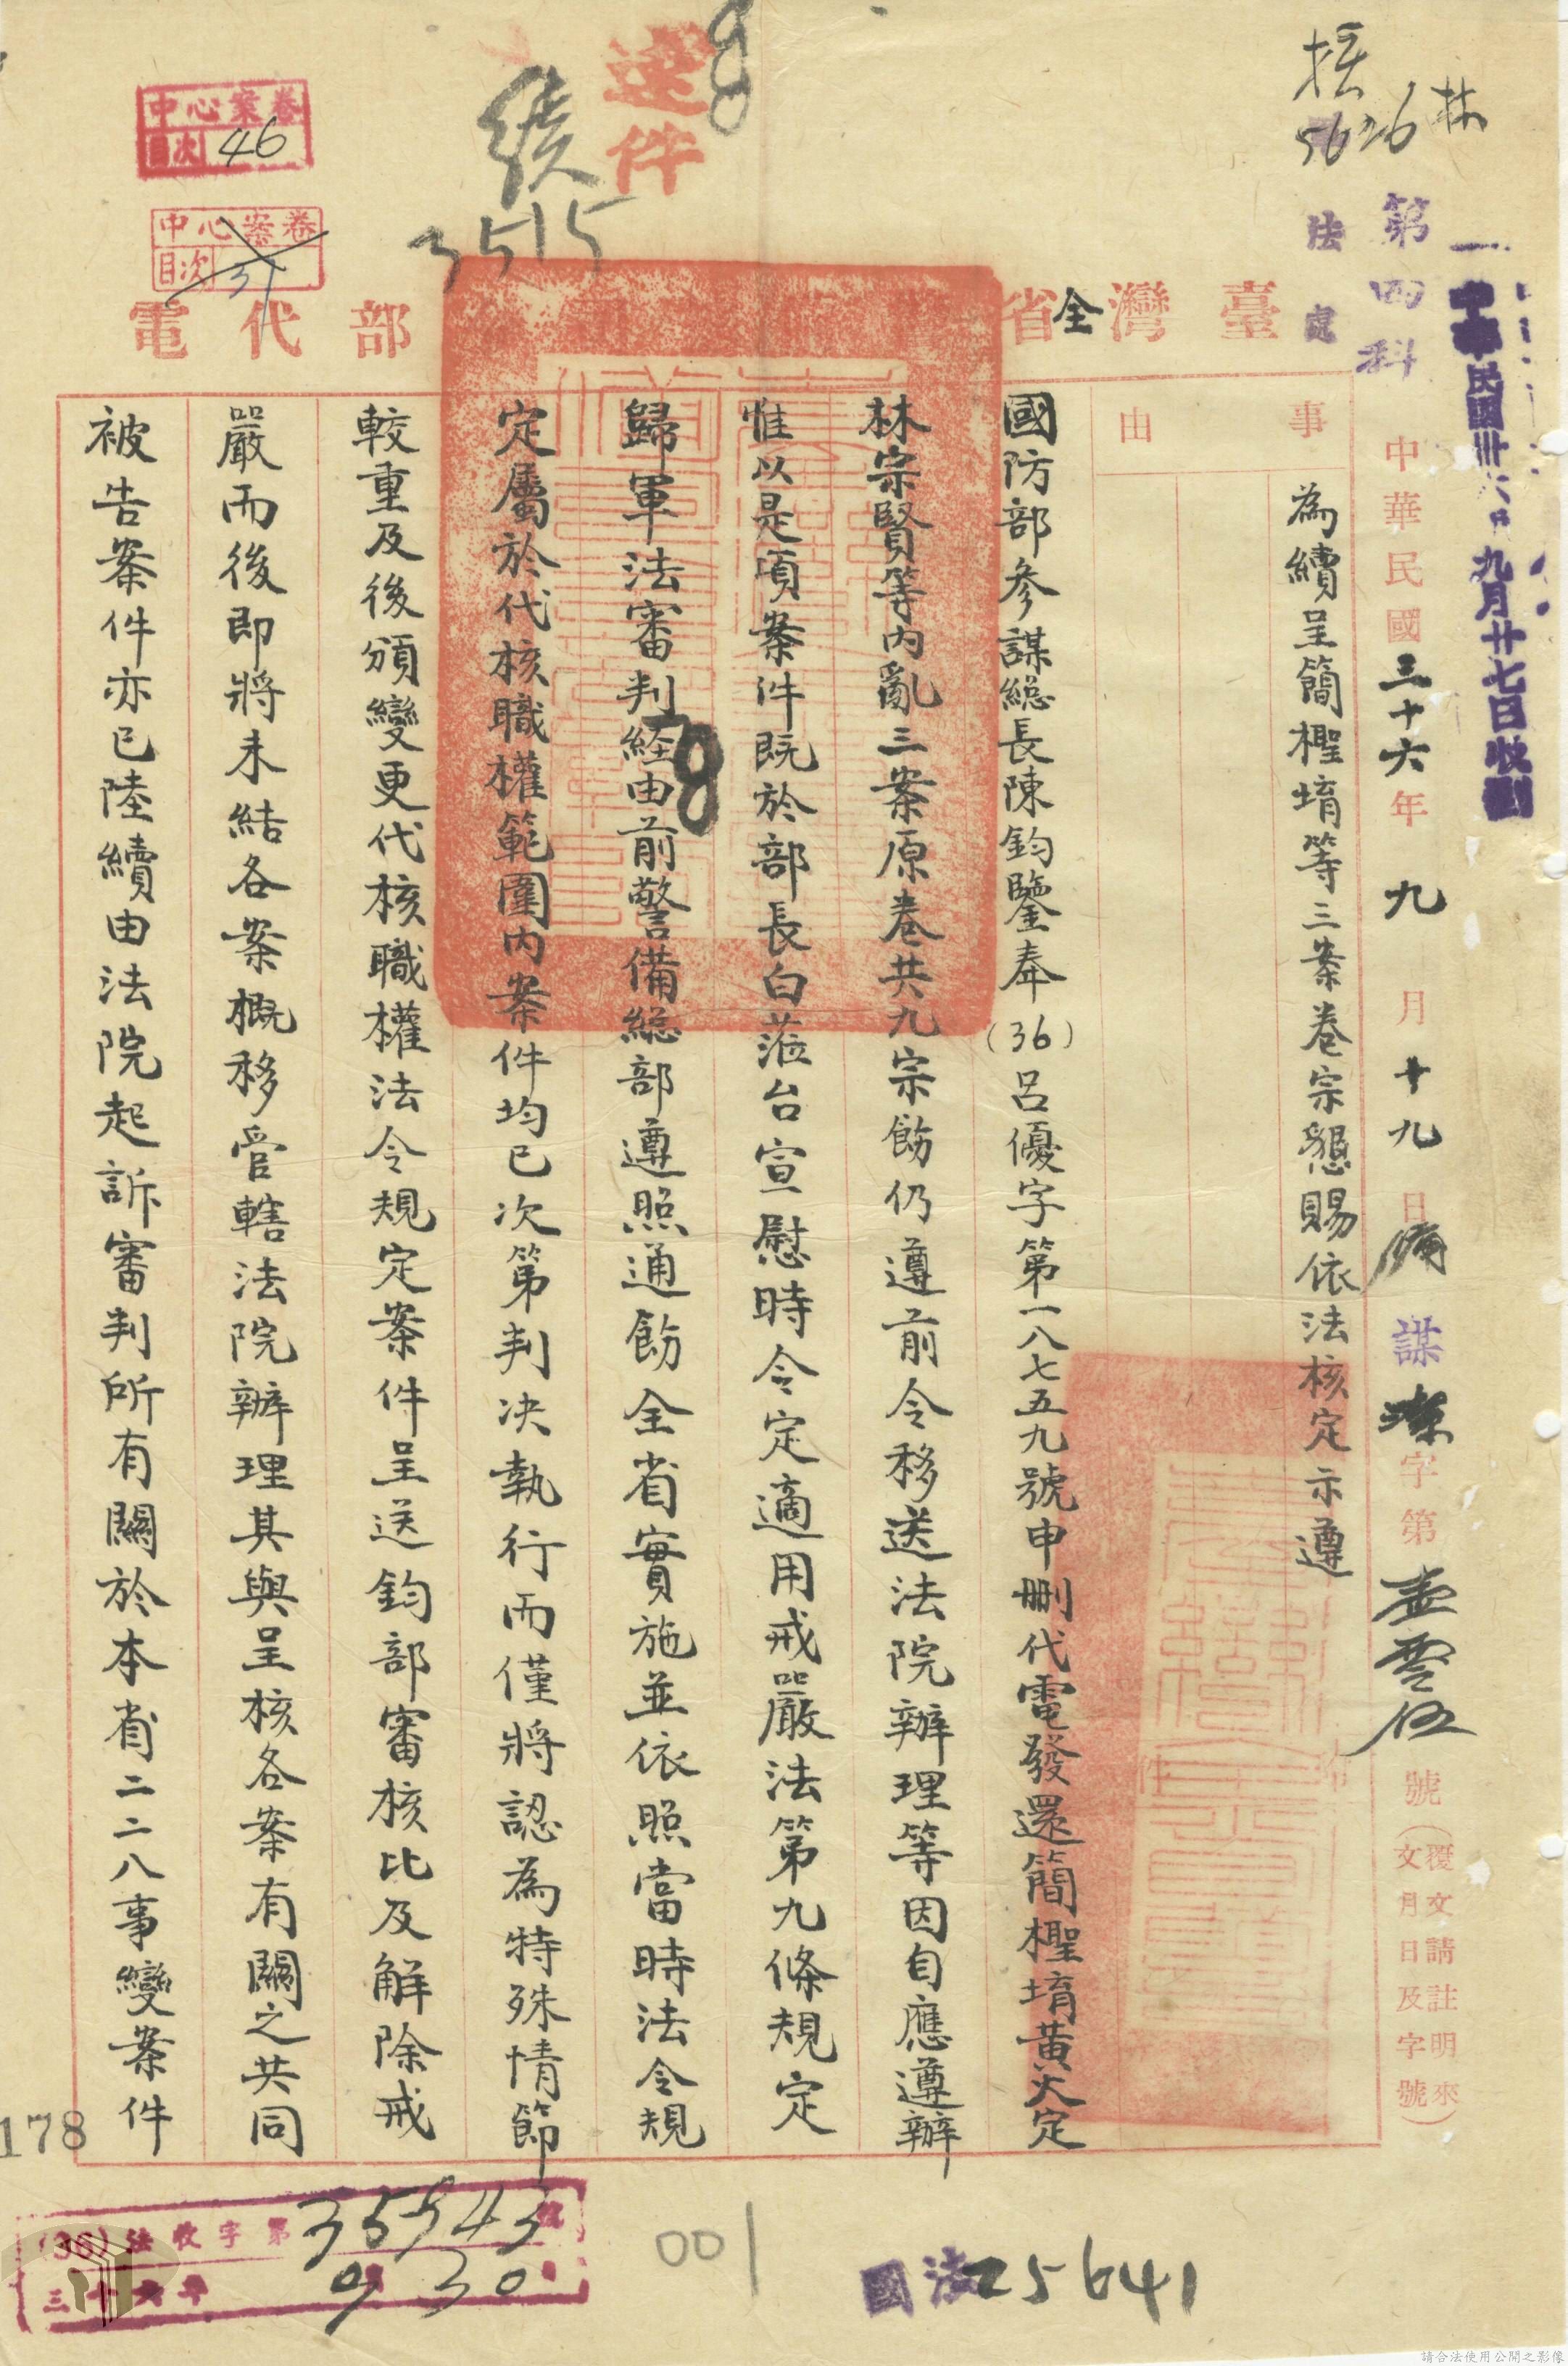 速件
續
3515
林
5626
法處
第四科
中華民國卅六年九月廿七日收到
中心案卷
目次
46
中心案卷
目次
31
臺灣省全
部代電
中華民國三十六年九月十九日
謀
字第壹零伍號
(覆文請註明來文月日及字號)
事由
為續呈簡檉堉等三案卷宗懇賜依法核定示遵
國防部參謀總長陳鈞鑒奉(36)呂優字第一八七五九號申刪代電發還簡檉堉黃火定
林宗賢等內亂三案原卷共九宗飭仍遵前令移送法院辦理等因自應遵辦
惟以是項案件既於部長白蒞台宣慰時令定適用戒嚴法第九條規定
歸軍法審判經由前警備總部遵照通飭全省實施並依照當時法令規
定屬於代核職權範圍內案件均已次第判決執行而僅將認為特殊情節
較重及後頒變更代核職權法令規定案件呈送鈞部審核比及解除戒
嚴而後即將未結各案概移管轄法院辦理其與呈核各案有關之共同
被告案件亦已陸續由法院起訴審判所有關於本省二二八事變案件
178
(36)法收字第35943號
三十六年9月30日
001
國法25641
請合法使用公開之影像